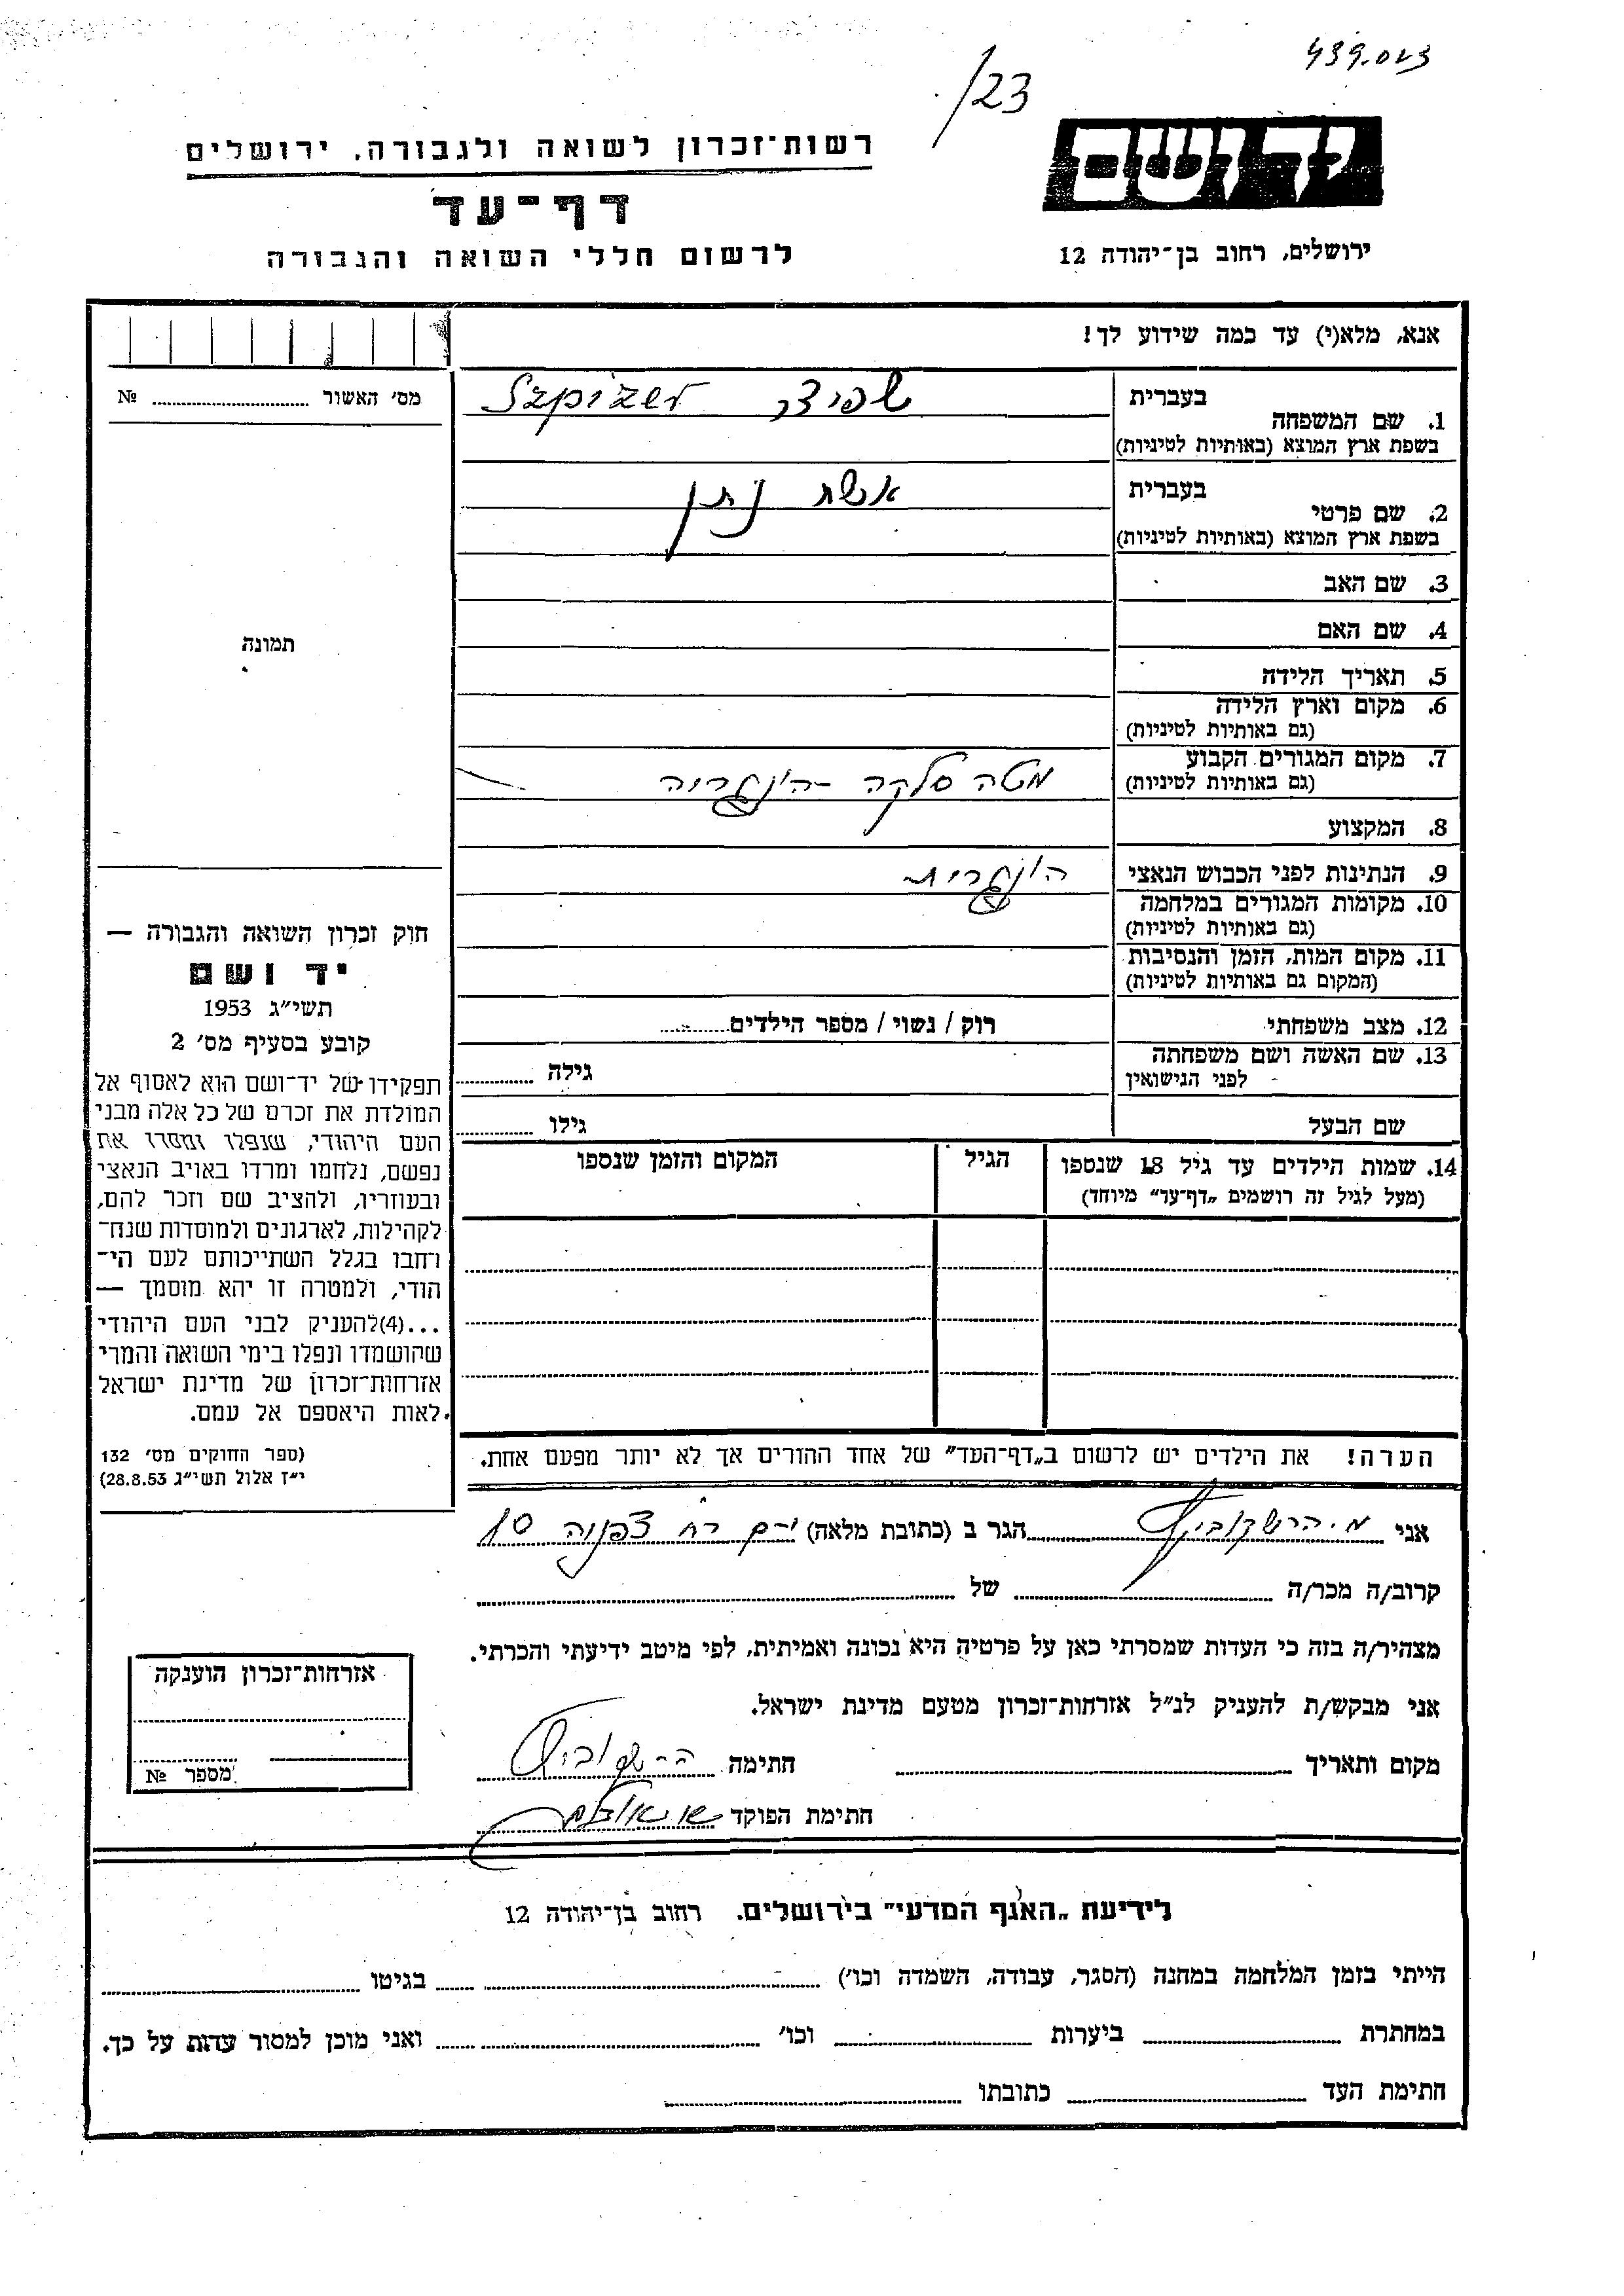 439.023
/23
יד ושם
רשות־זכרון לשואה ולגבורה, ירושלים
דף־עד
לרשום חללי השואה והגבורה
ירושלים, רחוב בן־יהודה 12
אנא, מלא(י) עד כמה שידוע לך!
מס׳ האשור № ........
1. שם המשפחה
בעברית
שפיצר Szpizer
בשפת ארץ המוצא (באותיות לטיניות)
2. שם פרטי
בעברית
אשת נתן
בשפת ארץ המוצא (באותיות לטיניות)
3. שם האב
4. שם האם
תמונה
5. תאריך הלידה
6. מקום וארץ הלידה
(גם באותיות לטיניות)
7. מקום המגורים הקבוע
(גם באותיות לטיניות)
מטה סלקה - הונגריה
8. המקצוע
9. הנתינות לפני הכבוש הנאצי
הונגרית
10. מקומות המגורים במלחמה
(גם באותיות לטיניות)
11. מקום המות, הזמן והנסיבות
(המקום גם באותיות לטיניות)
12. מצב משפחתי
רוק / נשוי / מספר הילדים........
13. שם האשה ושם משפחתה
לפני הנישואין
גילה ........
שם הבעל
גילו ........
14. שמות הילדים עד גיל 18 שנספו
(מעל לגיל זה רושמים „דף־עד״ מיוחד)
הגיל
המקום והזמן שנספו
הערה! את הילדים יש לרשום ב„דף־העד״ של אחד ההורים אך לא יותר מפעם אחת.
חוק זכרון השואה והגבורה —
יד ושם
תשי״ג 1953
קובע בסעיף מס׳ 2
תפקידו של יד־ושם הוא לאסוף אל
המולדת את זכרם של כל אלה מבני
העם היהודי, שנפלו ומסרו את
נפשם, נלחמו ומרדו באויב הנאצי
ובעוזריו, ולהציב שם וזכר להם,
לקהילות, לארגונים ולמוסדות שנח־
רחבו בגלל השתייכותם לעם הי־
הודי, ולמטרה זו יהא מוסמך —
...(4)להעניק לבני העם היהודי
שהושמדו ונפלו בימי השואה והמרי
אזרחות־זכרון של מדינת ישראל
לאות היאספם אל עמם.
(ספר החוקים מס׳ 132
י״ז אלול תשי״ג 28.8.53)
אני מ. הרשקוביץ הגר ב (כתובת מלאה) י-ם רח צפניה 10
קרוב/ה מכר/ה ........ של ........
מצהיר/ה בזה כי העדות שמסרתי כאן על פרטיה היא נכונה ואמיתית, לפי מיטב ידיעתי והכרתי.
אני מבקש/ת להעניק לנ״ל אזרחות־זכרון מטעם מדינת ישראל.
מקום ותאריך ........ חתימה הרשקוביץ
חתימת הפוקד
אזרחות־זכרון הוענקה
מספר №
לידיעת „האגף המדעי״ בירושלים. רחוב בן־יהודה 12
הייתי בזמן המלחמה במחנה (הסגר, עבודה, השמדה וכו׳) ........ בגיטו ........
במחתרת ........ ביערות ........ וכו׳ ........ ואני מוכן למסור עדות על כך.
חתימת העד ........ כתובתו ........